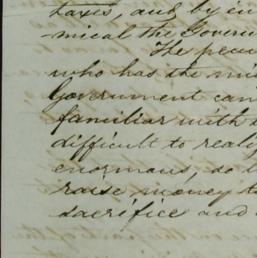 taxes, and by
mical the Govern
The pecu
who has the
Government can
familiar with
difficult to realiz
enormous, so
raise money t
sacrifice and